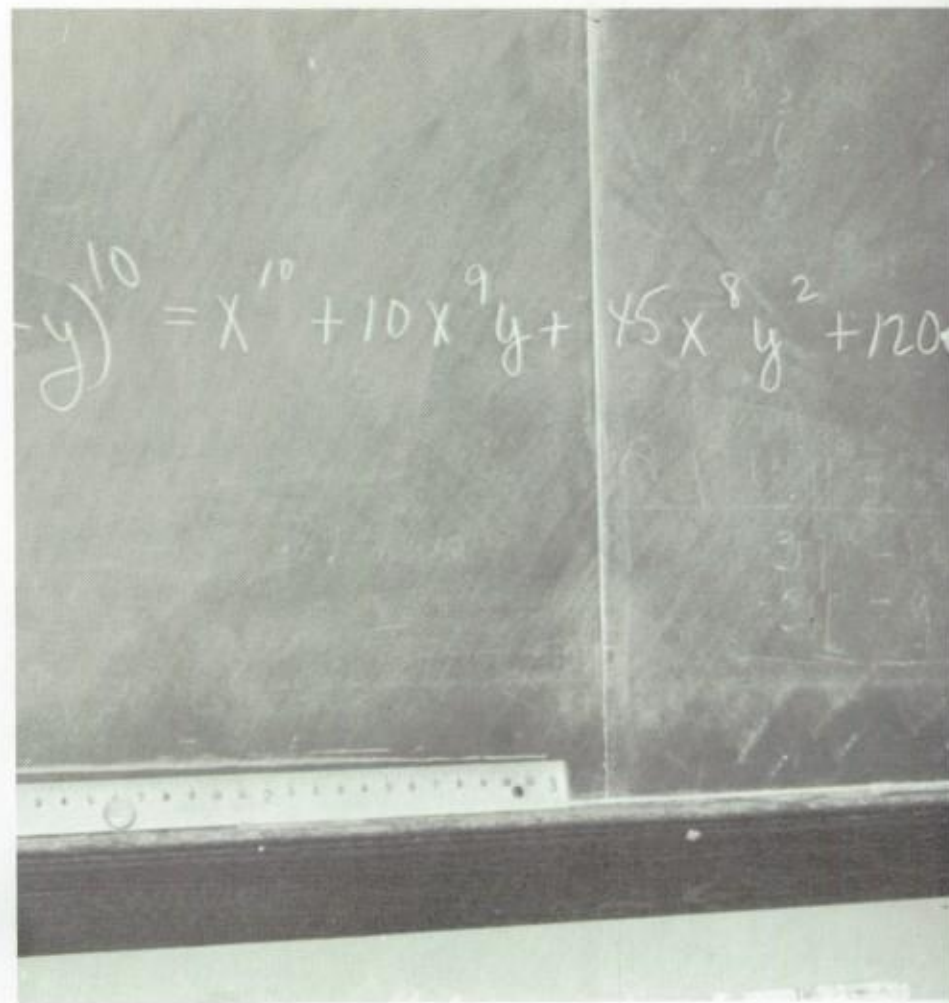 y)^10 = x^10 + 10x^9y + 45x^8y^2 + 120